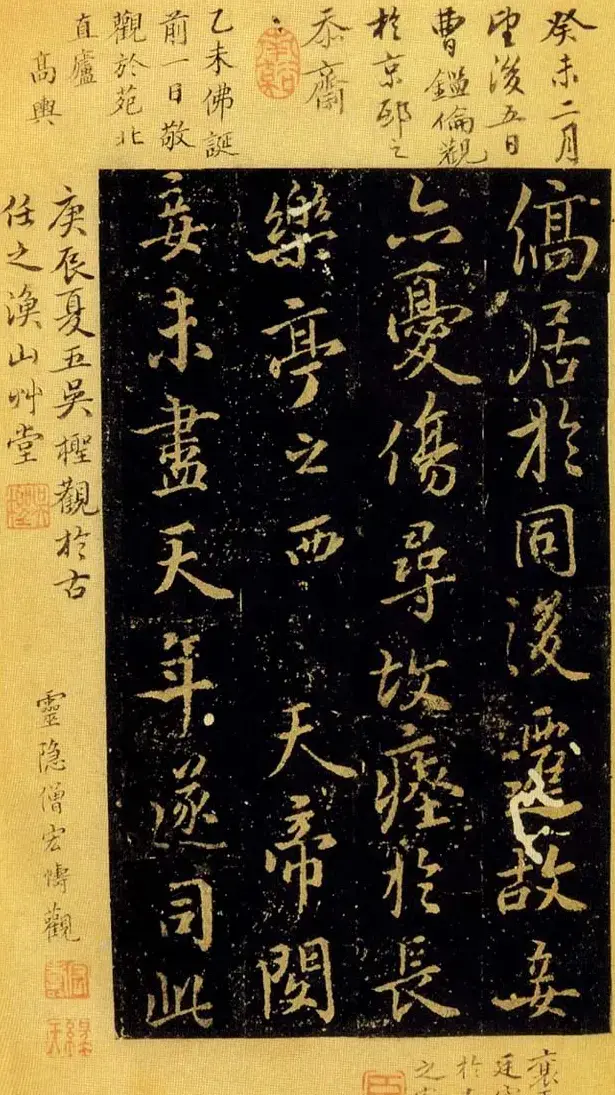 癸未二月
望後五日
曹鑑倫觀
於京邸之
忝齋
南谿
乙未佛誕
前一日敬
觀於苑北
直廬
高輿
縞居於同後故妾
亦憂傷尋故瘞於長
樂亭之西 天帝閔
妾未盡天年遂司此
庚辰夏五吳檉觀於古
任之漁山艸堂
靈隱僧宏懤觀